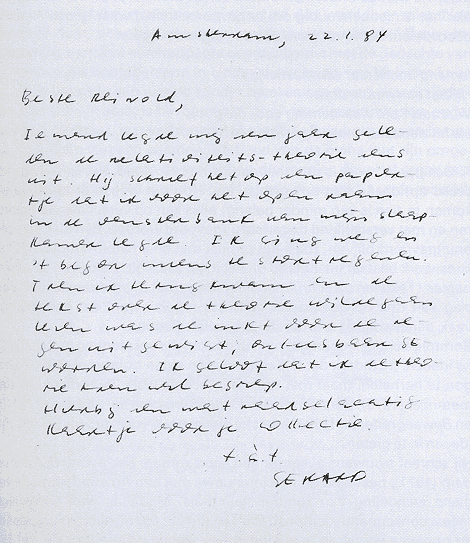 Amsterdam, 22.1.84
Beste Reinold,
Iemand legde mij een jaar gele-
den de relativiteits-theorie eens
uit. Hij schreef het op een papier-
tje dat ik voor het open raam
in de vensterbank van mijn slaap-
kamer legde. Ik ging weg en
't begon ineens te stortregenen.
Toen ik terugkwam en de
tekst over de theorie wilde gaan
lezen was de inkt door de re
gen uitgewist, onleesbaar ge
worden. Ik geloof dat ik de theo-
rie toen wel begreep.
Hierbij een wat raadselachtig
kaartje voor je collectie.
t.à.t.
GERARD